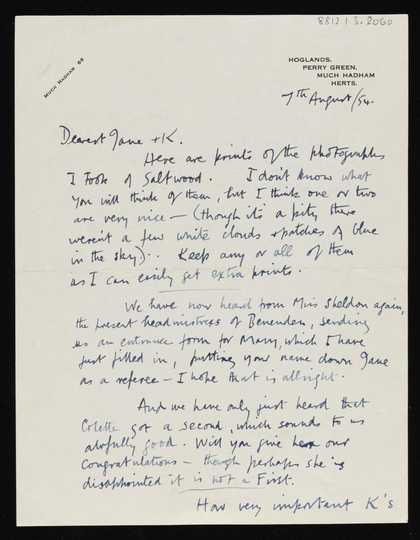 8812.1.3.2060
MUCH HADHAM 68
HOGLANDS,
PERRY GREEN,
MUCH HADHAM
HERTS.
7th August/54.
Dearest Jane + K.
Here are prints of the photographs
I took of Saltwood. I don't know what
you will think of them, but I think one or two
are very nice — (though it's a pity there
weren't a few white clouds & patches of blue
in the sky). Keep any or all of them
as I can easily get extra prints.
We have now heard from Miss Sheldon again,
the present headmistress of Benenden, sending
us an entrance form for Mary, which I have
just filled in, putting your name down Jane
as a referee — I hope that is allright.
And we have only just heard that
Colette got a second, which sounds to us
awfully good. Will you give her our
congratulations — though perhaps she is
disappointed it is not a First.
How very important K's